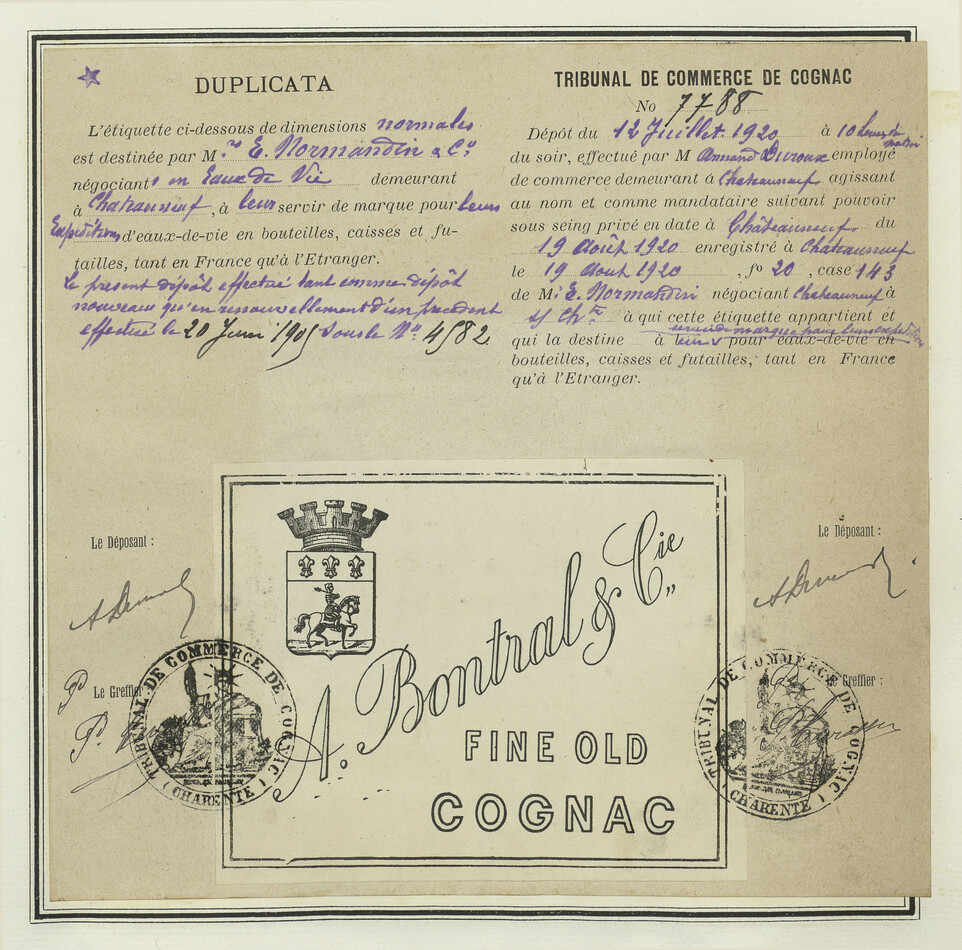 DUPLICATA
L'étiquette ci-dessous de dimensions normales
est destinée par M.rs E. Normandin & Cie
négociants en Eaux de Vie demeurant
à Chateauneuf, à leur servir de marque pour leurs
Expéditions d'eaux-de-vie en bouteilles, caisses et fu-
tailles, tant en France qu'à l'Etranger.
Le présent dépôt effectué tant comme dépôt
nouveau qu'en renouvellement d'un précédent
effectué le 20 Juin 1905 sous le No 4582
TRIBUNAL DE COMMERCE DE COGNAC
No 7788
Dépôt du 12 Juillet 1920 à 10 heures du matin
du soir, effectué par M Armand Duroux employé
de commerce demeurant à Chateauneuf agissant
au nom et comme mandataire suivant pouvoir
sous seing privé en date à Châteauneuf du
19 Août 1920 enregistré à Chateauneuf
le 19 Aout 1920, fo 20, case 143
de M: E. Normandin négociant Chateauneuf à
s/ Chte à qui cette étiquette appartient et
servir de marque pour leurs expéditions
qui la destine à leur pour eaux-de-vie en
bouteilles, caisses et futailles, tant en France
qu'à l'Etranger.
Le Déposant :
Le Déposant :
Le Greffier
Le Greffier :
TRIBUNAL DE COMMERCE DE COGNAC
(CHARENTE)
TRIBUNAL DE COMMERCE DE COGNAC
(CHARENTE)
A. Bontral & Cie
FINE OLD
COGNAC